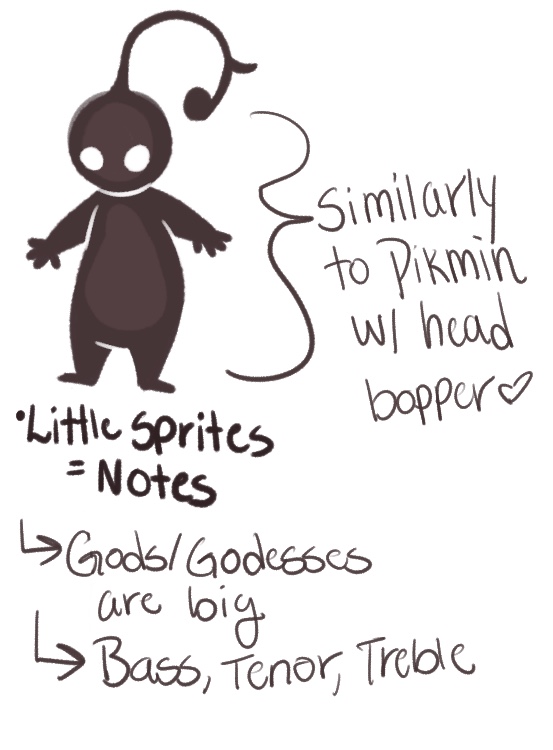 Similarly
to Pikmin
w/ head
bopper♡
•Little Sprites
= Notes
↳Gods/Godesses
are big
↳Bass, Tenor, Treble